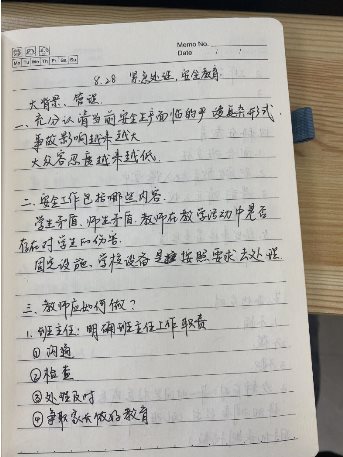 Memo No.
Mo Tu We Th Fr Sa Su
Date / /
8.28 安全教育
大背景、管理
一、充分认清当前安全生产面临的严峻复杂形式
事故影响越来越大
大众容忍度越来越低.
二、安全工作包括哪些内容.
学生矛盾.师生矛盾.教师在教学活动中是否
存在对学生的伤害.
固定设施、学校设备是 按照要求去处理.
三、教师应如何做?
1.班主任:明确班主任工作职责
①沟通
②检查
③处理及时
④争取家长做好教育